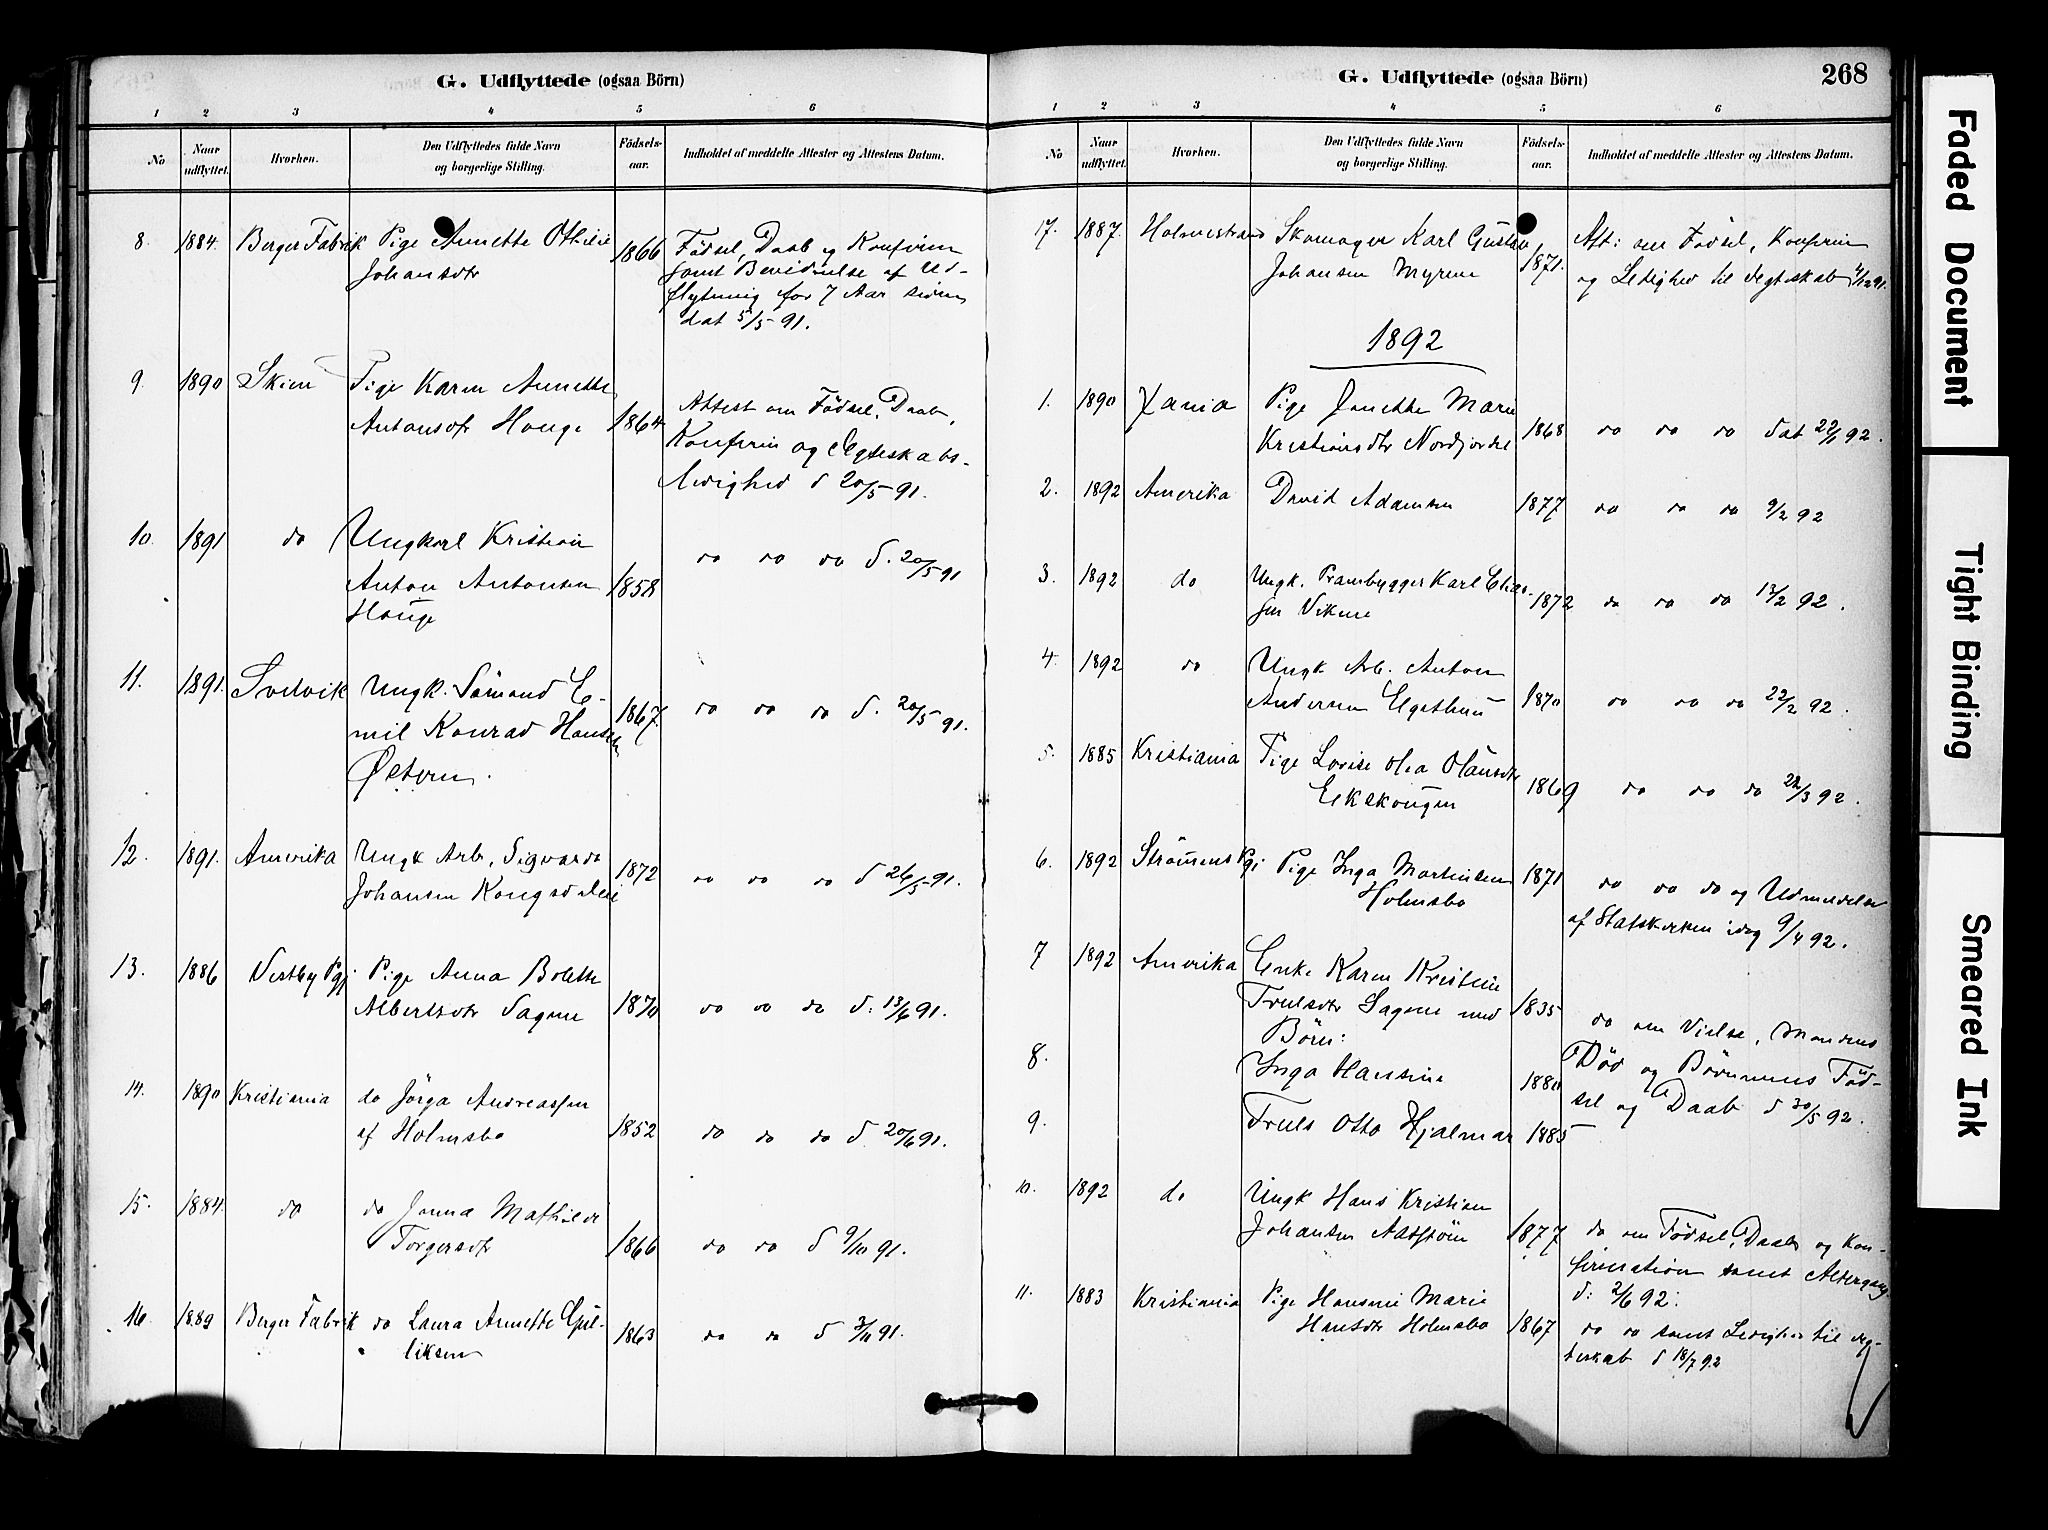 G. Udflyttede (ogsaa Börn)
1 2 3 4 5 6
No
Naar udflyttet.
Hvorhen.
Den Udflyttedes fulde Navn og borgerlige Stilling.
Födsels-aar.
Indholdet af meddelte Attester og Attestens Datum.
8. 1884. Berger Fabrik Pige Annette Othilie 1866 Födsel, Daab og Konfirm
Johansdtr samt Bevidnelse af Ud-
flytning for 7 Aar siden
dat 5/5 91.
9. 1890 Skien Pige Karen Annette 1864 Attest om Födsel, Daab,
Antonsdtr Houge Konfirm og Ægteskabs-
ledighed d 20/5 91.
10. 1891 do Ungkarl Kristian 1858 do do do d. 20/5 91
Anton Antonsen
Houge
11. 1891. Svelvik Ungk. Sömand E- 1867. do do do d. 20/5 91.
mil Konrad Hansen
Östern.
12. 1891. Amerika Ungk Arb. Sigvard 1872 do do do d 26/5 91.
Johansen Kongsdelie
13. 1886 Vestby Pgj. Pige Anna Bolette 1870 do do do d. 13/6 91.
Albertsdtr Sagene
14. 1890 Kristiania do Jörga Andreassen 1852 do do do d. 20/6 91.
af Holmsbo
15. 1884. do do Janna Mathilde 1866 do do d 9/10 91.
Torgersdtr
16. 1889 Berger Fabrik do Laura Annette Gul- 1863 do do d 3/11 91.
liksen
G. Udflyttede (ogsaa Börn) 268
1 2 3 4 5 6
No
Naar udflyttet.
Hvorhen.
Den Udflyttedes fulde Navn og borgerlige Stilling.
Födsels-aar.
Indholdet af meddelte Attester og Attestens Datum.
17. 1887. Holmestrand Skomager Karl Gustav 1871. Att: om Födsel, Konfirm
Johansen Myrene og Ledighed til Ægteskab 4/12 91.
1892
1. 1890 Xania Pige Janette Marie 1868 do do do dat 22/1 92.
Kristiansdtr Nordjordet
2. 1892 Amerika David Adamsen 1877 do do do 9/2 92
3. 1892 do Ungk. Prambygger Karl Elias- 1872 do do do 13/2 92.
sen Vikene
4. 1892 do Ungk Arb. Anton 1870 do do do 22/2 92.
Andersen
5. 1885 Kristiania Pige Lovise Olea Olausdtr 1869 do do do 22/3 92.
Ekeskougen
6. 1892 Strömens Pgj Pige Inga Martinsen 1871 do do do og Udmeldelse
Holmsbo af Statskirken idag 9/4 92.
7 1892 Amerika Enke Karen Kristine 1835 do om Vielse, Mandens
Trulsdtr Sagene med Död og Börnenes Föd-
Börn: sel og Daab d 30/5 92.
8. Inga Hansine 1880
9. Truls Otto Hjalmar 1885
10. 1892 do Ungk Hans Kristian 1877 do om Födsel, Daab og Kon-
Johansen firmation samt Altergang
d. 2/6 92.
11. 1883 Kristiania Pige Hansine Marie 1867 do do samt Ledighed til Æg-
Hansdtr Holmsbo teskab d 18/7 92
Faded Document
Tight Binding
Smeared Ink